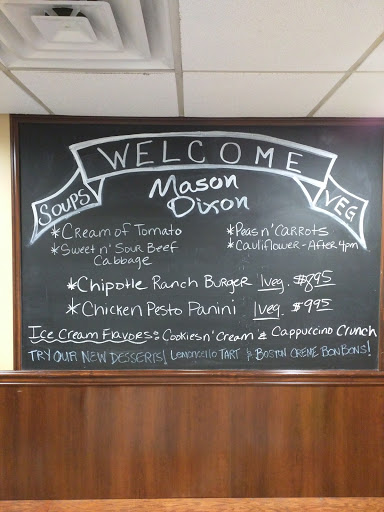 WELCOME
Mason
Dixon
SOUPS
VEG
*Cream of Tomato
*Sweet n' Sour Beef
Cabbage
*Peas n' Carrots
*Cauliflower - After 4pm
*Chipotle Ranch Burger 1veg. $8.95
*Chicken Pesto Panini 1veg. $9.95
Ice Cream Flavors: Cookies n' Cream & Cappuccino Crunch
TRY OUR NEW DESSERTS! Lemoncello TART & BOSTON CREME BONBONS!